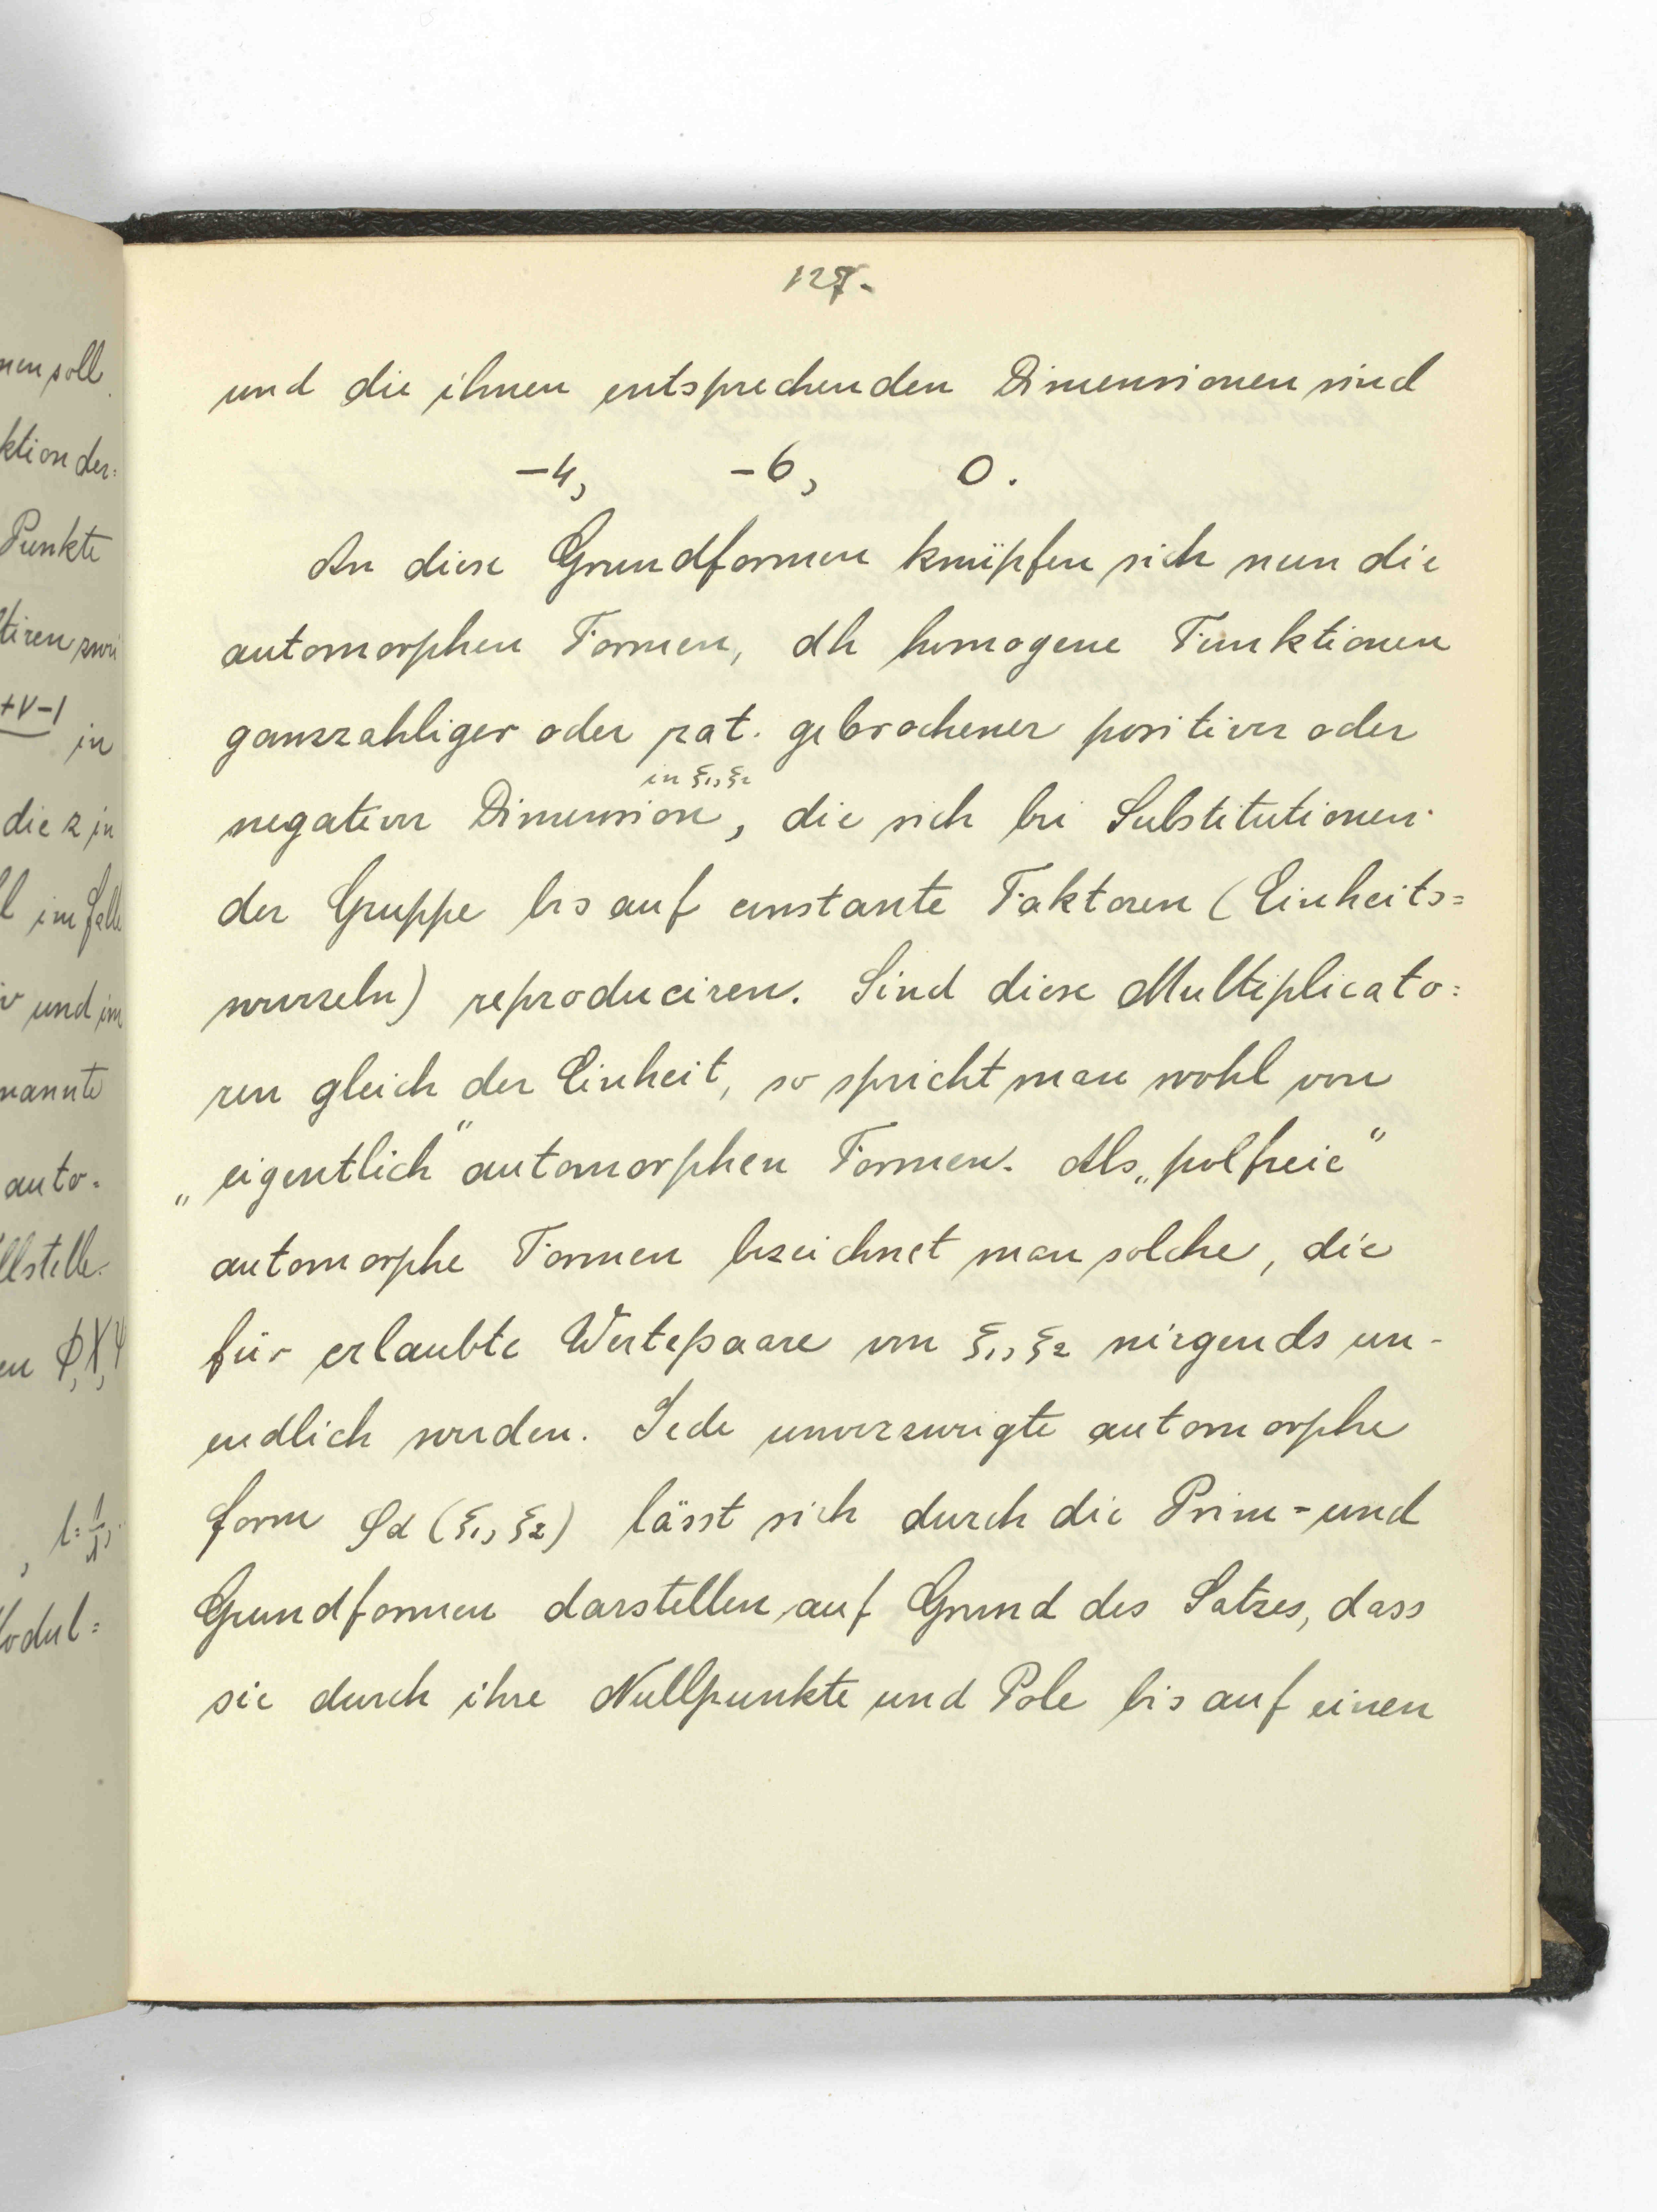 127.
und die ihnen entsprechenden Dimensionen sind
-4, -6, 0.
An diese Grundformen knüpfen sich nun die
automorphen Formen, dh homogene Funktionen
ganzzahliger oder rat. gebrochener positiver oder
in ξ₁, ξ₂
negativer Dimension, die sich bei Substitutionen
der Gruppe bis auf constante Faktoren (Einheits=
wurzeln) reproduciren. Sind diese Multiplicato=
ren gleich der Einheit, so spricht man wohl von
„eigentlich“ automorphen Formen. Als „polfreie“
automorphe Formen bezeichnet man solche, die
für erlaubte Wertepaare von ξ₁, ξ₂ nirgends un-
endlich werden. Jede unverzweigte automorphe
Form φd (ξ₁, ξ₂) lässt sich durch die Prim= und
Grundformen darstellen auf Grund des Satzes, dass
sie durch ihre Nullpunkte und Pole bis auf einen
nen soll
ktion der=
Punkte
+ν-1
in
die z in
im Falle
und im
nannte
auto=
llstelle